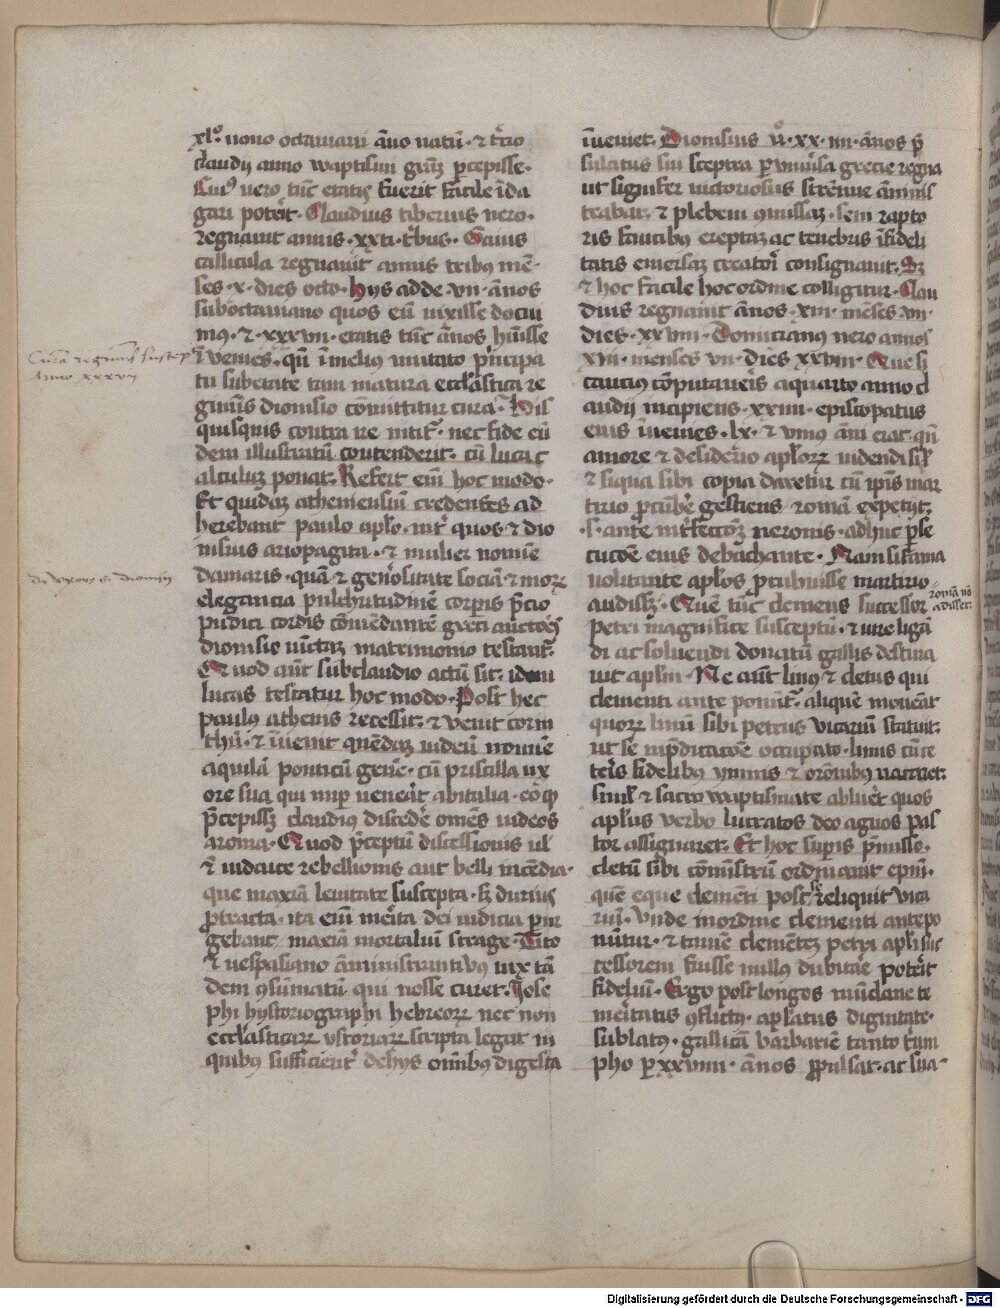 xl.º nono octauiani ãno natũ · ⁊ t̃cio
claudij anno waptismi gr̃am ꝑcepisse ·
Cuiꝰ vero tũc etatis fuerit facile ĩda
gari poter̃it · Claudius tiberius nero ·
regnauit annis · xxti · tⁱbus · Gaius
callicula regnauit annis tribꝰ mẽ ·
ses · x · dies octo · hijs adde · vii · ãnos
sub octauiano quos eũ vixisse docui
mꝰ · ⁊ · xxxvii · etatis tũc ãnos hũisse
ĩvenies · qñ ĩ melius mutato principa
tu sub etate tam matura eccl̃astica re
giminis dionisio cõmittitur cura · His
quisquis contra ire nitit̃ · nec fide eũ
dem illustratũ contenderit · cũ luca c
alculuꝫ ponat · Refert eni᷒ hoc modo ·
Et quidaꝫ atheniensiũ credentes ad
herebant paulo aplo · int̃ quos ⁊ dio
nisius ariopagita · ⁊ mulier nomĩe
damaris · quã ⁊ gen̾ositate sociã ⁊ moꝝ
elegancia pulchritudinẽ corpis p̃cio
pudici cordis cõmẽdantẽ greci auctores
dionisio iũctaꝫ matrimonio testant̃ ·
Quod aũt sub claudio actũ sit · idem
lucas testatur hoc modo · Post hec
paulꝰ athenis recessit · ⁊ venit corin
thũ · ⁊ ĩvenit quẽdaꝫ iudeũ nomĩe
aquilã ponticũ geñe · cũ priscilla vx
ore sua qui nuꝑ veneãt ab italia · eo ꝙ
p̃cepissꝫ claudius discedẽ om̃es iudeos
a roma · Quod p̃ceptũ discessionis ul
⁊ iudaice rebellionis aut belli incẽdia ·
que maxiã leuitate suscepta · sꝫ durius
ꝓtracta · ita eni᷒ mẽita dei iudicia ꝑur
gebant maxiã mortaliũ strage · Tito
⁊ vespasiano ãministrantibꝰ vix tã
dem ꝯsũmatũ qui nosse curet · Jose
phi hystoriographi hebreoꝝ nec non
eccl̃asticaꝝ ystoriaꝝ scripta legat in
quibꝰ sufficient̃ de hijs om̃ibꝰ digesta
Curã regiminis suscep
Anno xxxvii
de vxore s. dionisij
ĩveniet · Dionisius v̊ · xx · iiii · ãnos p̃
sulatus sui sceptra ꝑ vniũsa grecie regna
ut signifer victoriosus strẽnue ãminis
trabat · ⁊ plebem ꝯmissaꝫ · sem rapto
ris faucibꝰ ereptaꝫ ac tenebris ĩfideli
tatis emersaꝫ creatori consignauit · Sꝫ
⁊ hoc facile hoc ordine colligitur · Clau
dius regnauit ãnos · xiii · mẽses vii ·
dies · xxviii · Domicianus nero annos
xiii · menses vii · dies xxviii · Que si
caucius cõputaueris a quarto anno cl
audij incipiens · xxiiii · episcopatus
eius ĩvenies · lx · ⁊ vniꝰ ãni erat · qñ
amore ⁊ desiderio aploꝝ videndi sil̃
⁊ si qua sibi copia daretur cũ ip̃is mar
tirio ꝓcũbẽ gestiens · romã expetijt ·
· s · ante int̃fectoꝫ neronis · adhuc ꝑse
cucõe eius debachante · Nam si fama
volitante aplos ꝓcubuisse martirio
audissꝫ · romã nõ
adisset ·
Quẽ tũc clemens successor
petri magnifice susceptũ · ⁊ iure ligã
di ac soluendi donatũ gallis destina
uit aplm̃ · Ne aũt linꝰ ⁊ cletus qui
clementi ante ponũt̃ · aliquẽ moueãt
quoꝝ linũ sibi petrus vicariũ statuit ·
ut se in p̃dicacõe occupato · linus cũ ce
teris fidelibꝰ ymnis ⁊ orõnibꝰ vacaret ·
Simil̃ ⁊ sacro waptismate abluẽt quos
aplus verbo lucratos deo agnos pas
tor assignaret · Et hoc supis p̃misso ·
cletũ sibi cõmistrũ ordinauit epm̃ ·
quẽ eque clemẽti post se reliquit vica
riũ · Vnde in ordine clementi antepo
nũtur · ⁊ tamẽ clemẽteꝫ petri apli suc
cessorem fuisse nullꝰ dubitãe poterit
fideliũ · Ergo post longos mũdane te
meritatis ꝯflictꝰ · aplatus dignitate ·
sublatꝰ · gallicã barbariẽ tanto trium
pho ꝑ xxviiii · ãnos ꝓpulsat · ac sua ·
Digitalisierung gefördert durch die Deutsche Forschungsgemeinschaft - DFG